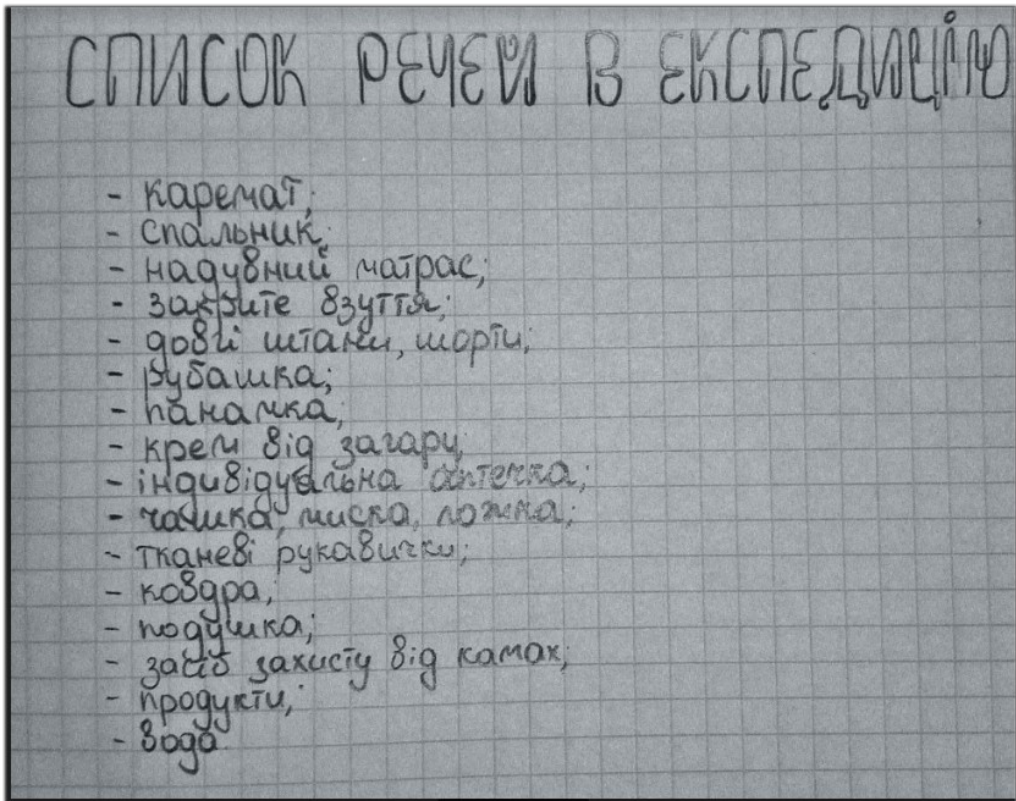 СПИСОК РЕЧЕЙ В ЕКСПЕДИЦІЮ
- каремат;
- спальник;
- надувний матрас;
- закрите взуття;
- довгі штани, шорти;
- рубашка;
- панамка;
- крем від загару;
- індивідуальна аптечка;
- чашка, миска, ложка;
- тканеві рукавички;
- ковдра;
- подушка;
- засіб захисту від камах;
- продукти;
- вода.